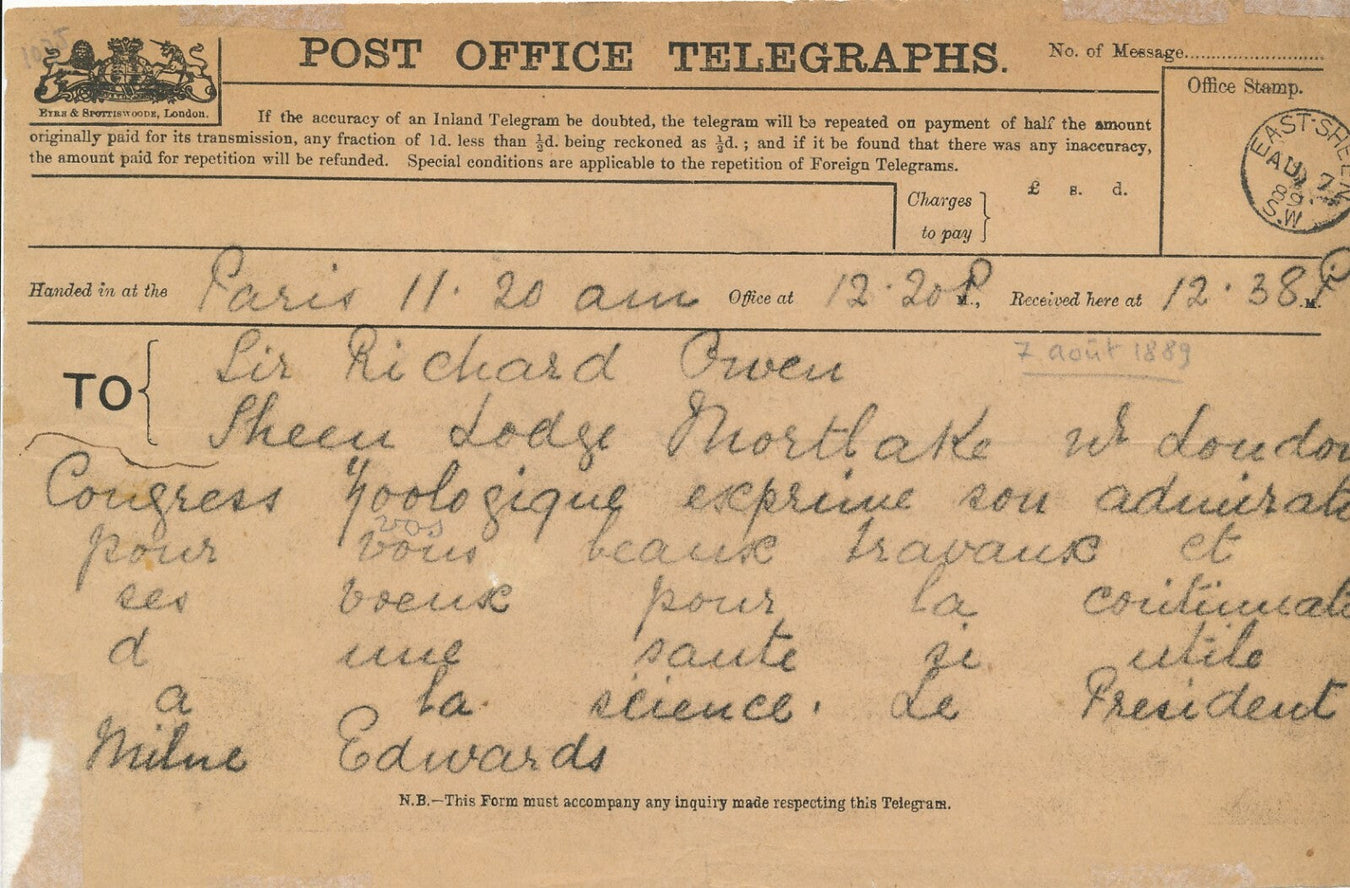 POST OFFICE TELEGRAPHS.
No. of Message
EYRE & SPOTTISWOODE, London.
Office Stamp.
If the accuracy of an Inland Telegram be doubted, the telegram will be repeated on payment of half the amount
originally paid for its transmission, any fraction of 1d. less than ½d. being reckoned as ½d.; and if it be found that there was any inaccuracy,
the amount paid for repetition will be refunded. Special conditions are applicable to the repetition of Foreign Telegrams.
EAST-SHEEN
AU 7
89
S.W
Charges to pay
£ s. d.
Handed in at the Paris 11.20 am Office at 12.20 P M., Received here at 12.38 P M.
7 août 1889
TO Sir Richard Owen
Sheen Lodge Mortlake nr London
Congress Zoologique exprime son admirat
vos
pour vous beaux travaux et
ses voeux pour la continuat
d une sante si utile
a la science. Le President
Milne Edwards
N.B.—This Form must accompany any inquiry made respecting this Telegram.